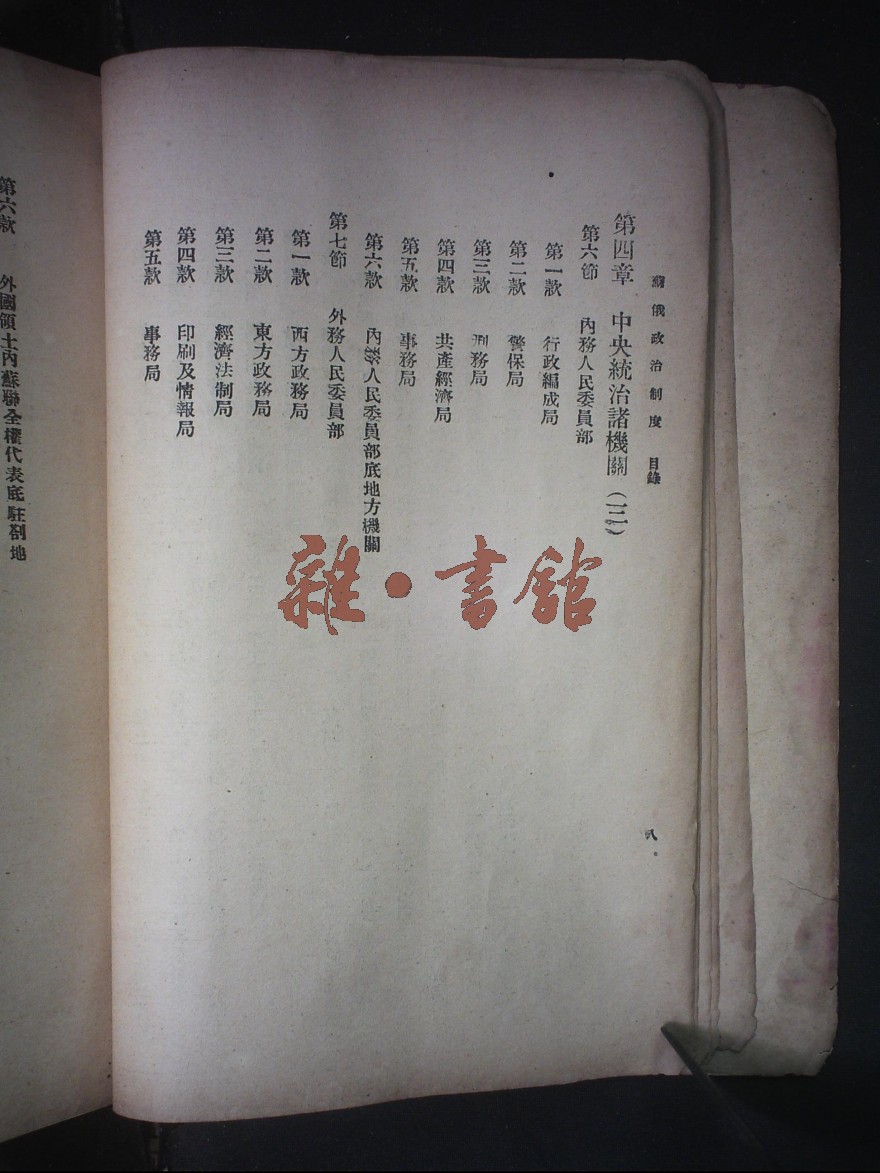 蘇俄政治制度 目錄
第四章 中央統治諸機關(三)
第六節 內務人民委員部
第一款 行政編成局
第二款 警保局
第三款 刑務局
第四款 共產經濟局
第五款 事務局
第六款 內務人民委員部底地方機關
第七節 外務人民委員部
第一款 西方政務局
第二款 東方政務局
第三款 經濟法制局
第四款 印刷及情報局
第五款 事務局
八
第六款 外國領土內蘇聯全權代表底駐劄地
雜·書館